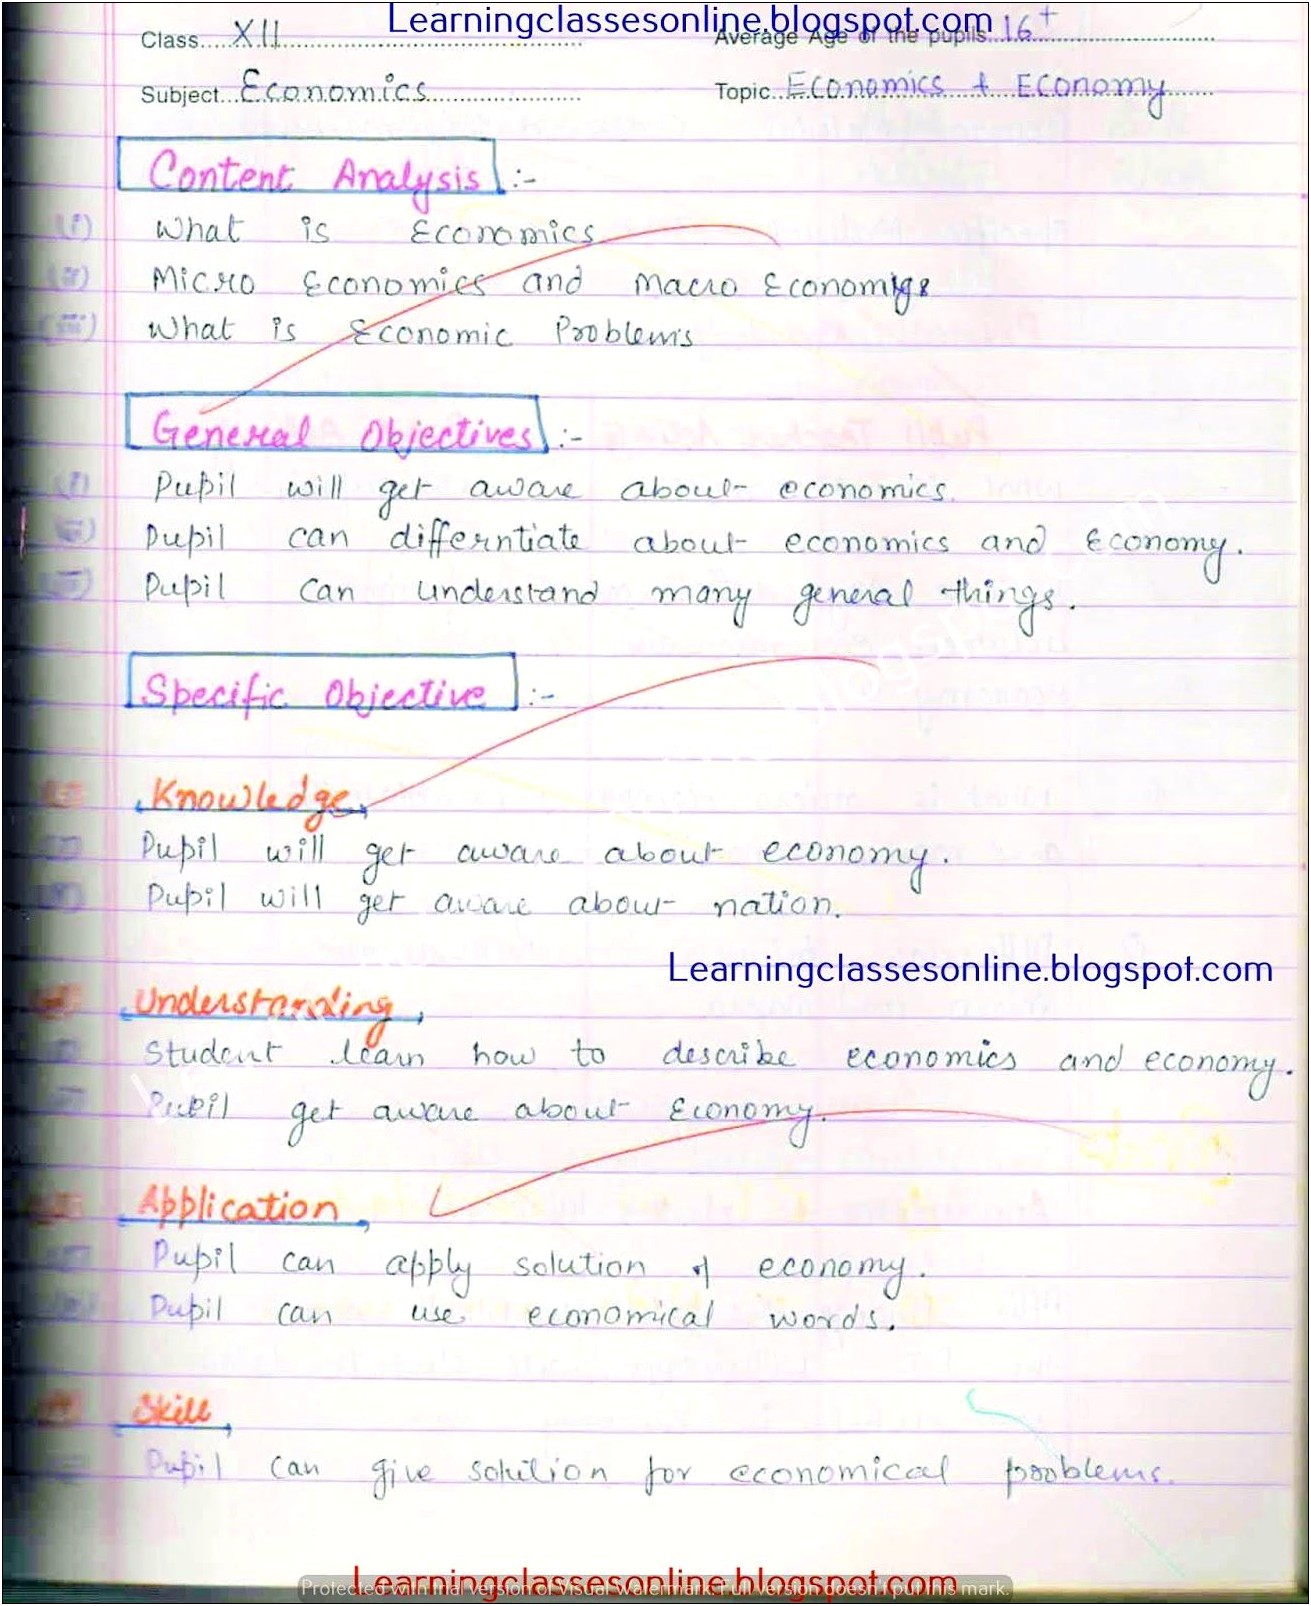 Learningclassesonline.blogspot.com
Class....XII.... Average Age of the pupils..16+....
Subject...Economics.... Topic...Economics & Economy....
Content Analysis :-
(i) What is Economics
(ii) Micro Economics and Macro Economics
(iii) What is Economic Problems
General Objectives :-
(i) Pupil will get aware about economics.
(ii) Pupil can differntiate about economics and Economy.
(iii) Pupil can understand many general things.
Specific Objective :-
Knowledge
Pupil will get aware about economy.
Pupil will get aware about nation.
Learningclassesonline.blogspot.com
Understanding
Student learn how to describe economics and economy.
Pupil get aware about Economy.
Application
Pupil can apply solution of economy.
Pupil can use economical words.
Skill
Pupil can give solution for economical problems.
Learningclassesonline.blogspot.com
Protected with trial version of Visual Watermark. Full version doesn't put this mark.